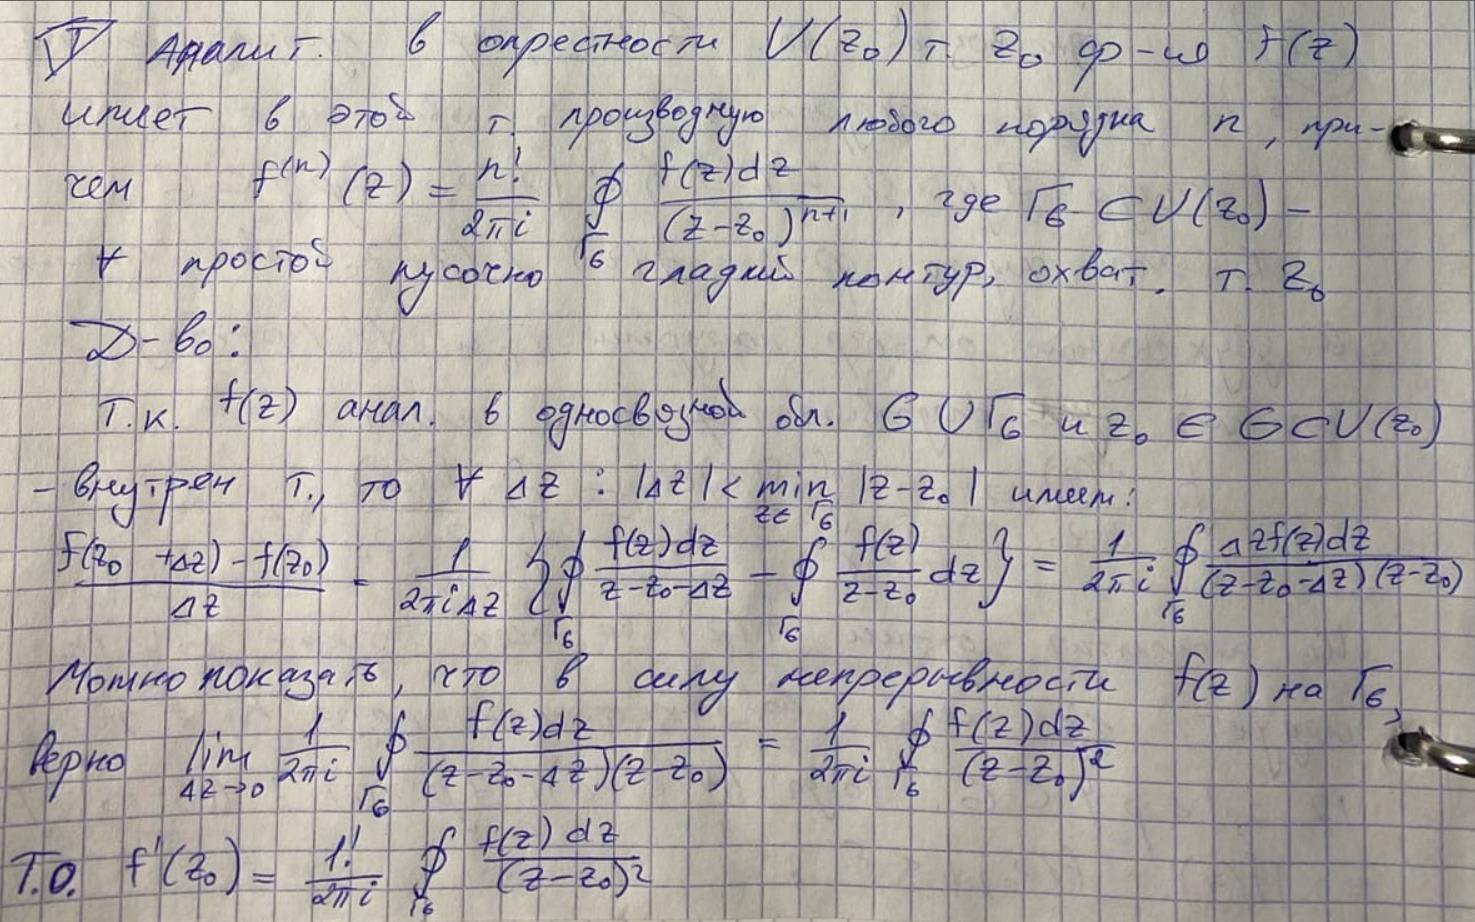 T Аналит. в окрестности U(z₀) т. z₀ ф-ия f(z)
имеет в этой т. производную любого порядка n, при-
чем f⁽ⁿ⁾(z) = n!/2πi ∮_Γ_G f(z)dz/(z-z₀)ⁿ⁺¹, где Γ_G ⊂ U(z₀) -
∀ простой кусочно гладкий контур, охват. т. z₀
Д-во:
Т.к. f(z) анал. в односвязной обл. G ∪ Γ_G и z₀ ∈ G ⊂ U(z₀)
- внутрен т., то ∀ Δz : |Δz| < min_{z∈Γ_G} |z-z₀| имеем:
(f(z₀ + Δz) - f(z₀))/Δz = 1/2πiΔz {∮_Γ_G f(z)dz/(z-z₀-Δz) - ∮_Γ_G f(z)/(z-z₀) dz} = 1/2πi ∮_Γ_G Δzf(z)dz/(z-z₀-Δz)(z-z₀)
Можно показать, что в силу непрерывности f(z) на Γ_G,
верно lim_{Δz→0} 1/2πi ∮_Γ_G f(z)dz/(z-z₀-Δz)(z-z₀) = 1/2πi ∮_Γ_G f(z)dz/(z-z₀)²
Т.О. f'(z₀) = 1!/2πi ∮_Γ_G f(z)dz/(z-z₀)²